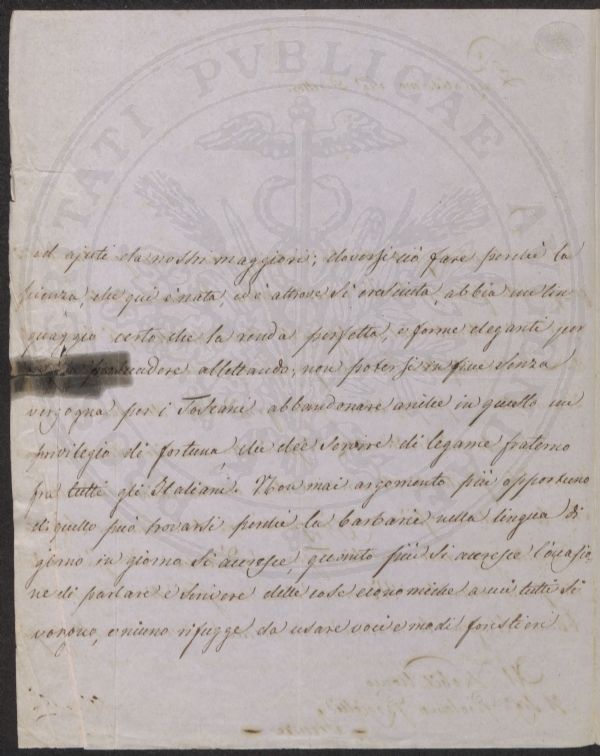 ed ajuti da nostri maggiori; doversi ciò fare perchè la
scienza, che quì è nata, ed è altrove sì cresciuta, abbia un lin
guaggio certo che la renda perfetta, e forme eleganti per
prendere allettando; non potersi in fine senza
vergogna per i Toscani abbandonare anche in questo un
privilegio di fortuna che dee servire di legame fraterno
fra tutti gli Italiani. Non mai argomento più opportuno
di quello può trovarsi perchè la barbarie nella lingua di
giorno in giorno si accresce, quanto più si accresce l'occasio
ne di parlare e scrivere delle cose economiche a cui tutti si
volgono, e niuno rifugge da usare voci e modi forestieri